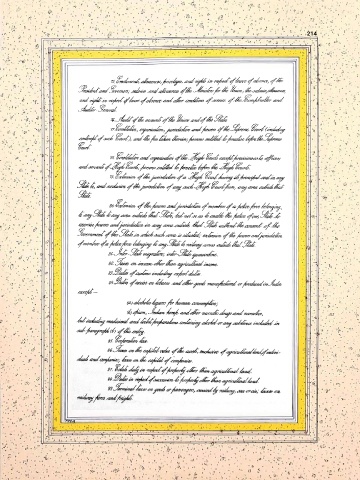 214
75. Emoluments, allowances, privileges, and rights in respect of leave of absence, of the
President and Governors; salaries and allowances of the Ministers for the Union; the salaries, allowances,
and rights in respect of leave of absence and other conditions of service of the Comptroller and
Auditor-General.
76. Audit of the accounts of the Union and of the States.
77. Constitution, organisation, jurisdiction and powers of the Supreme Court (including
contempt of such Court), and the fees taken therein; persons entitled to practise before the Supreme
Court.
78. Constitution and organisation of the High Courts except provisions as to officers
and servants of High Courts; persons entitled to practise before the High Courts.
79. Extension of the jurisdiction of a High Court having its principal seat in any
State to, and exclusion of the jurisdiction of any such High Court from, any area outside that
State.
80. Extension of the powers and jurisdiction of members of a police force belonging
to any State to any area outside that State, but not so as to enable the police of one State to
exercise powers and jurisdiction in any area outside that State without the consent of the
Government of the State in which such area is situated; extension of the powers and jurisdiction
of members of a police force belonging to any State to railway areas outside that State.
81. Inter-State migration; inter-State quarantine.
82. Taxes on income other than agricultural income.
83. Duties of customs including export duties.
84. Duties of excise on tobacco and other goods manufactured or produced in India
except—
(a) alcoholic liquors for human consumption;
(b) opium, Indian hemp and other narcotic drugs and narcotics,
but including medicinal and toilet preparations containing alcohol or any substance included in
sub-paragraph (b) of this entry.
85. Corporation tax.
86. Taxes on the capital value of the assets, exclusive of agricultural land, of indivi-
duals and companies; taxes on the capital of companies.
87. Estate duty in respect of property other than agricultural land.
88. Duties in respect of succession to property other than agricultural land.
89. Terminal taxes on goods or passengers, carried by railway, sea or air; taxes on
railway fares and freights.